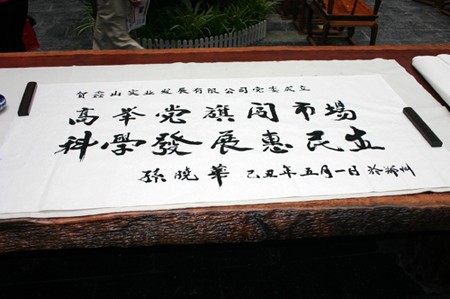 贺磊山实业发展有限公司党委成立
高举党旗闯市場
科學發展惠民立
孫晓華 己丑年五月一日於郴州